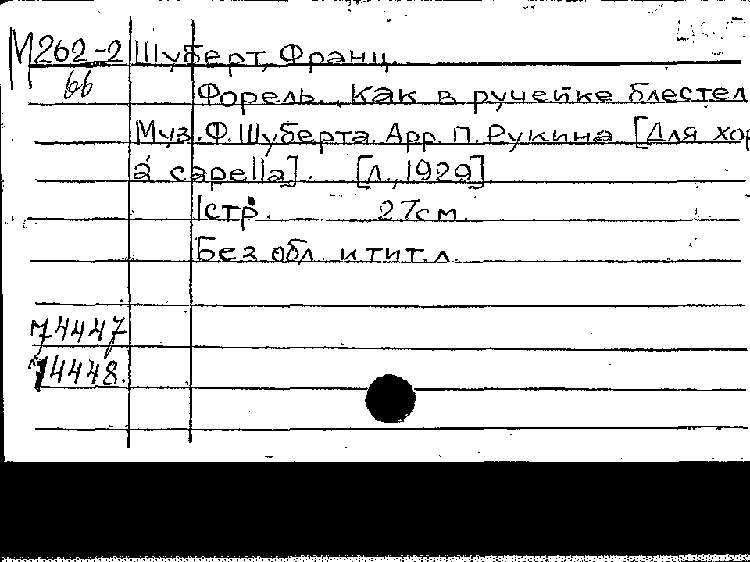 М262-2 Шуберт, Франц.
66
Форель. Как в ручейке блестел
Муз. Ф. Шуберта. Арр. П. Рукина [Для хор
a capella]. [Л., 1929]
1 стр. 27 см.
Без обл. и тит. л.
74447
74448.